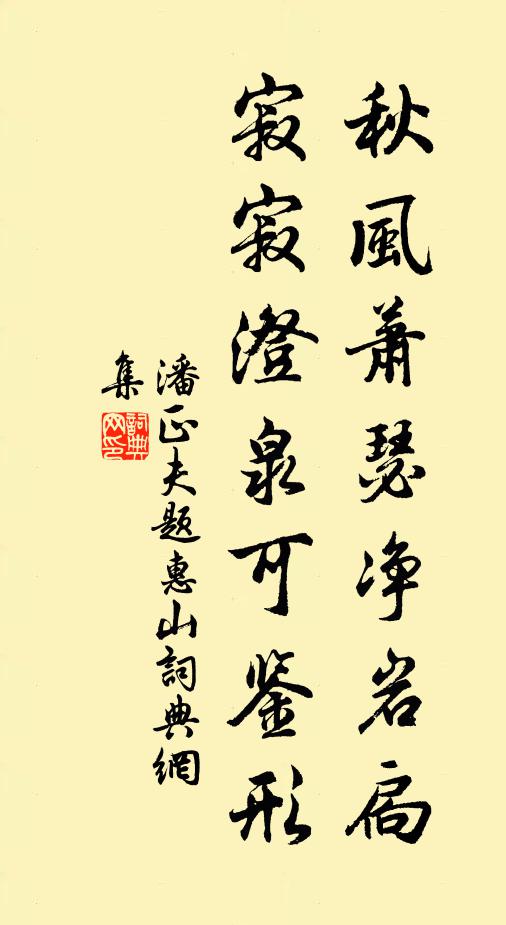 秋風蕭瑟净岩扃
寂寂澄泉可鉴形
潘正夫题惠山詞典網
集
詞典
网印